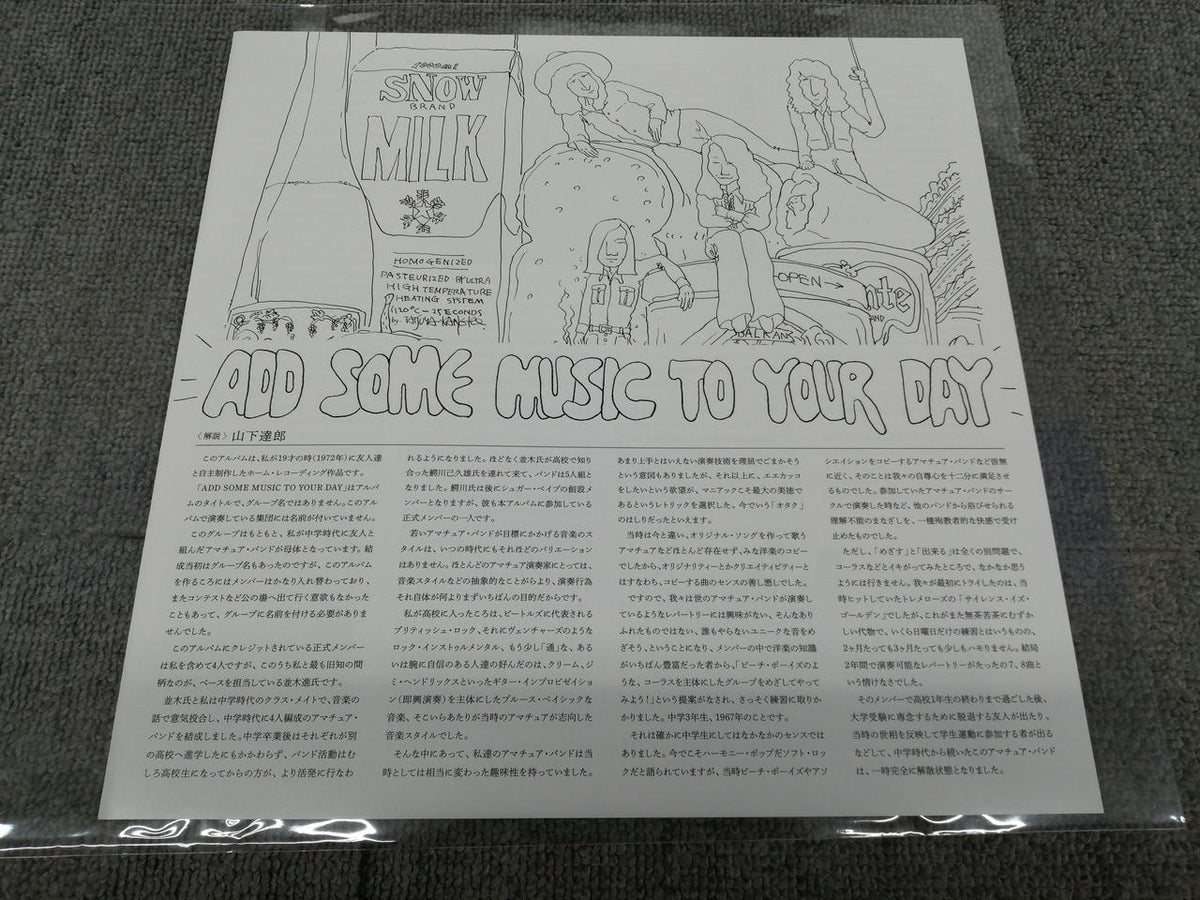 1000ml
SNOW
BRAND
MILK
HOMOGENIZED
PASTEURIZED BY ULTRA
HIGH TEMPERATURE
HEATING SYSTEM
(120°C-2SECONDS
by
OPEN→
nte
AND
BALKANS
ADD SOME MUSIC TO YOUR DAY
〈解説〉山下達郎
このアルバムは、私が19才の時(1972年)に友人達
と自主制作したホーム・レコーディング作品です。
「ADD SOME MUSIC TO YOUR DAY」はアルバ
ムのタイトルで、グループ名ではありません。このアル
バムで演奏している集団には名前が付いていません。
このグループはもともと、私が中学時代に友人と
組んだアマチュア・バンドが母体となっています。結
成当初はグループ名もあったのですが、このアルバム
を作るころにはメンバーはかなり入れ替わっており、
またコンテストなど公の場へ出て行く意欲もなかった
こともあって、グループに名前を付ける必要がありま
せんでした。
このアルバムにクレジットされている正式メンバー
は私を含めて4人ですが、このうち私と最も旧知の間
柄なのが、ベースを担当している並木進氏です。
並木氏と私は中学時代のクラス・メイトで、音楽の
話で意気投合し、中学時代に4人編成のアマチュア・
バンドを結成しました。中学卒業後はそれぞれが別
の高校へ進学したにもかかわらず、バンド活動はむ
しろ高校生になってからの方が、より活発に行なわ
れるようになりました。ほどなく並木氏が高校で知り
合った鰐川己久雄氏を連れて来て、バンドは5人組と
なりました。鰐川氏は後にシュガー・ベイブの創設メ
ンバーとなりますが、彼も本アルバムに参加している
正式メンバーの一人です。
若いアマチュア・バンドが目標にかかげる音楽のス
タイルは、いつの時代にもそれほどのバリエーション
はありません。ほとんどのアマチュア演奏家にとっては、
音楽スタイルなどの抽象的なことがらより、演奏行為
それ自体が何よりまずいちばんの目的だからです。
私が高校に入ったころは、ビートルズに代表される
ブリティッシュ・ロック、それにヴェンチャーズのような
ロック・インストゥルメンタル、もう少し「通」な、ある
いは腕に自信のある人達の好んだのは、クリーム、ジ
ミ・ヘンドリックスといったギター・インプロビゼイション
(即興演奏)を主体にしたブルース・ベイシックな
音楽、そこいらあたりが当時のアマチュアが志向した
音楽スタイルでした。
そんな中にあって、私達のアマチュア・バンドは当
時としては相当に変わった趣味性を持っていました。
あまり上手とはいえない演奏技術を理屈でごまかそう
という意図もありましたが、それ以上に、エエカッコ
をしたいという欲望が、マニアックこそ最大の美徳で
あるというレトリックを選択した、今でいう「オタク」
のはしりだったといえます。
当時は今と違い、オリジナル・ソングを作って歌う
アマチュアなどほとんど存在せず、みな洋楽のコピー
でしたから、オリジナリティーとかクリエイティビティーと
はすなわち、コピーする曲のセンスの善し悪しでした。
ですので、我々は世のアマチュア・バンドが演奏し
ているようなレパートリーには興味がない、そんなあり
ふれたものではない、誰もやらないユニークな音をめ
ざそう、ということになり、メンバーの中で洋楽の知識
がいちばん豊富だった者から、「ビーチ・ボーイズのよ
うな、コーラスを主体にしたグループをめざしてやって
みよう!」という提案がなされ、さっそく練習に取りか
かりました。中学3年生、1967年のことです。
それは確かに中学生にしてはなかなかのセンスでは
ありました。今でこそハーモニー・ポップだソフト・ロッ
クだと語られていますが、当時ビーチ・ボーイズやアソ
シエイションをコピーするアマチュア・バンドなど皆無
に近く、そのことは我々の自尊心を十二分に満足させ
るものでした。参加していたアマチュア・バンドのサー
クルで演奏した時など、他のバンドから浴びせられる
理解不能のまなざしを、一種殉教者的な快感で受け
止めたものでした。
ただし、「めざす」と「出来る」は全くの別問題で、
コーラスなどとイキがってみたところで、なかなか思う
ようには行きません。我々が最初にトライしたのは、当
時ヒットしていたトレメローズの「サイレンス・イズ・
ゴールデン」でしたが、これがまた無茶苦茶にむずか
しい代物で、いくら日曜日だけの練習とはいうものの、
2ヶ月たっても3ヶ月たっても少しもハモりません。結局
2年間で演奏可能なレパートリーがたったの7、8曲と
いう情けなさでした。
そのメンバーで高校1年生の終わりまで過ごした後、
大学受験に専念するために脱退する友人が出たり、
当時の世相を反映して学生運動に参加する者が出る
などして、中学時代から続いたこのアマチュア・バンド
は、一時完全に解散状態となりました。